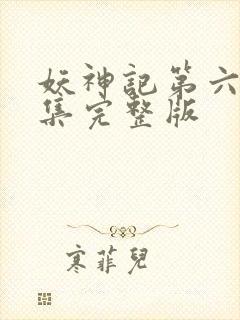 妖神記第六
集完整版
寒菲兒